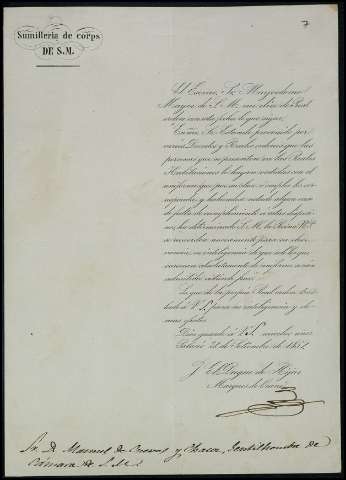 7
Sumilleria de corps
DE S.M.
El Excmo. Sr. Mayordomo
Mayor de S. M. me dice de Real
orden con esta fecha lo que sigue:
"Excmo. Sr. Estando prevenido por
varios Decretos y Reales ordenes que las
personas que se presenten en las Reales
Habitaciones lo hagan vestidas con el
uniforme que por su clase o empleo les cor
responda, y habiendose notado alguna vez
la falta de cumplimiento a estas disposi
ciones, ha determinado S. M. la Reina
se recuerden nuevamente para su obser
vancia, en inteligencia de que al que
Lo que de la propia Real orden tras
lado á V.S. para su inteligencia y de
mas efectos.
Dios guarde á V.S. muchos años.
Palacio 28 de Setiembre de
El Duque de Hijar
Marques de Orani
Sr. D. Manuel de Cuevas y Chacon, Gentilhombre de
Cámara de S. M.